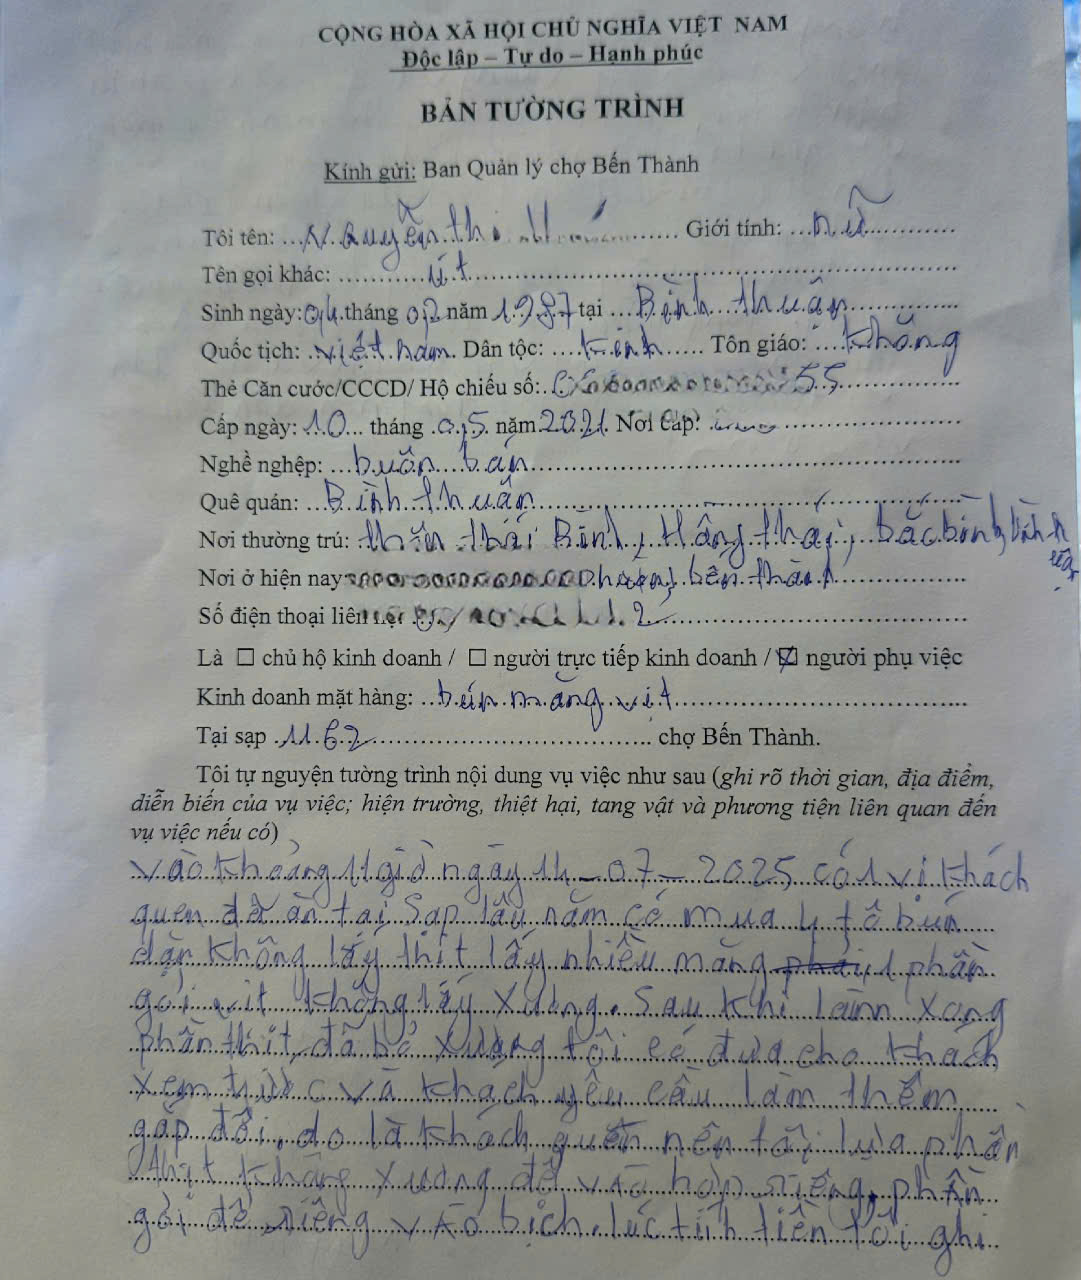 CỘNG HÒA XÃ HỘI CHỦ NGHĨA VIỆT NAM
Độc lập – Tự do – Hạnh phúc
BẢN TƯỜNG TRÌNH
Kính gửi: Ban Quản lý chợ Bến Thành
Tôi tên: Nguyễn thị Giới tính: nữ
Tên gọi khác: út
Sinh ngày: 04 tháng 02 năm 1987 tại Bình thuận
Quốc tịch: việt nam Dân tộc: kinh Tôn giáo: không
Thẻ Căn cước/CCCD/ Hộ chiếu số: 55
Cấp ngày: 10 tháng 05 năm 2021 Nơi cấp:
Nghề nghệp: buôn bán
Quê quán: Bình thuận
Nơi thường trú: thôn thái Bình, Hồng thái, bắc bình, bình
Nơi ở hiện nay bến thành
Số điện thoại liên 2
Là ☐ chủ hộ kinh doanh / ☐ người trực tiếp kinh doanh / ☑ người phụ việc
Kinh doanh mặt hàng: bún măng vịt
Tại sạp 1162 chợ Bến Thành.
Tôi tự nguyện tường trình nội dung vụ việc như sau (ghi rõ thời gian, địa điểm,
diễn biến của vụ việc; hiện trường, thiệt hại, tang vật và phương tiện liên quan đến
vụ việc nếu có)
vào khoảng 11 giờ ngày 14-07-2025 có 1 vị khách
quen đã ăn tại sạp lâu năm có mua 4 tô bún
dặn không lấy thịt lấy nhiều măng 1 phần
gỏi vịt không lấy xương. Sau khi làm xong
phần thịt đã bỏ xương tôi có đưa cho khách
xem trước và khách yêu cầu làm thêm
gấp đôi, do là khách quen nên tôi lựa phần
thịt không xương để vào hộp riêng, phần
gỏi để riêng vào bịch. lúc tính tiền tôi ghi